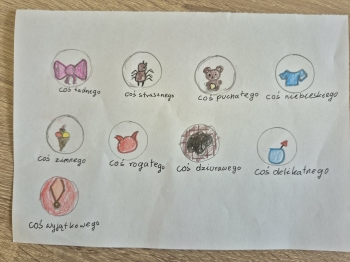 coś ładnego
coś strasznego
coś puchatego
coś niebieskiego
coś zimnego
coś rogatego
coś dziurawego
coś delikatnego
coś wyjątkowego